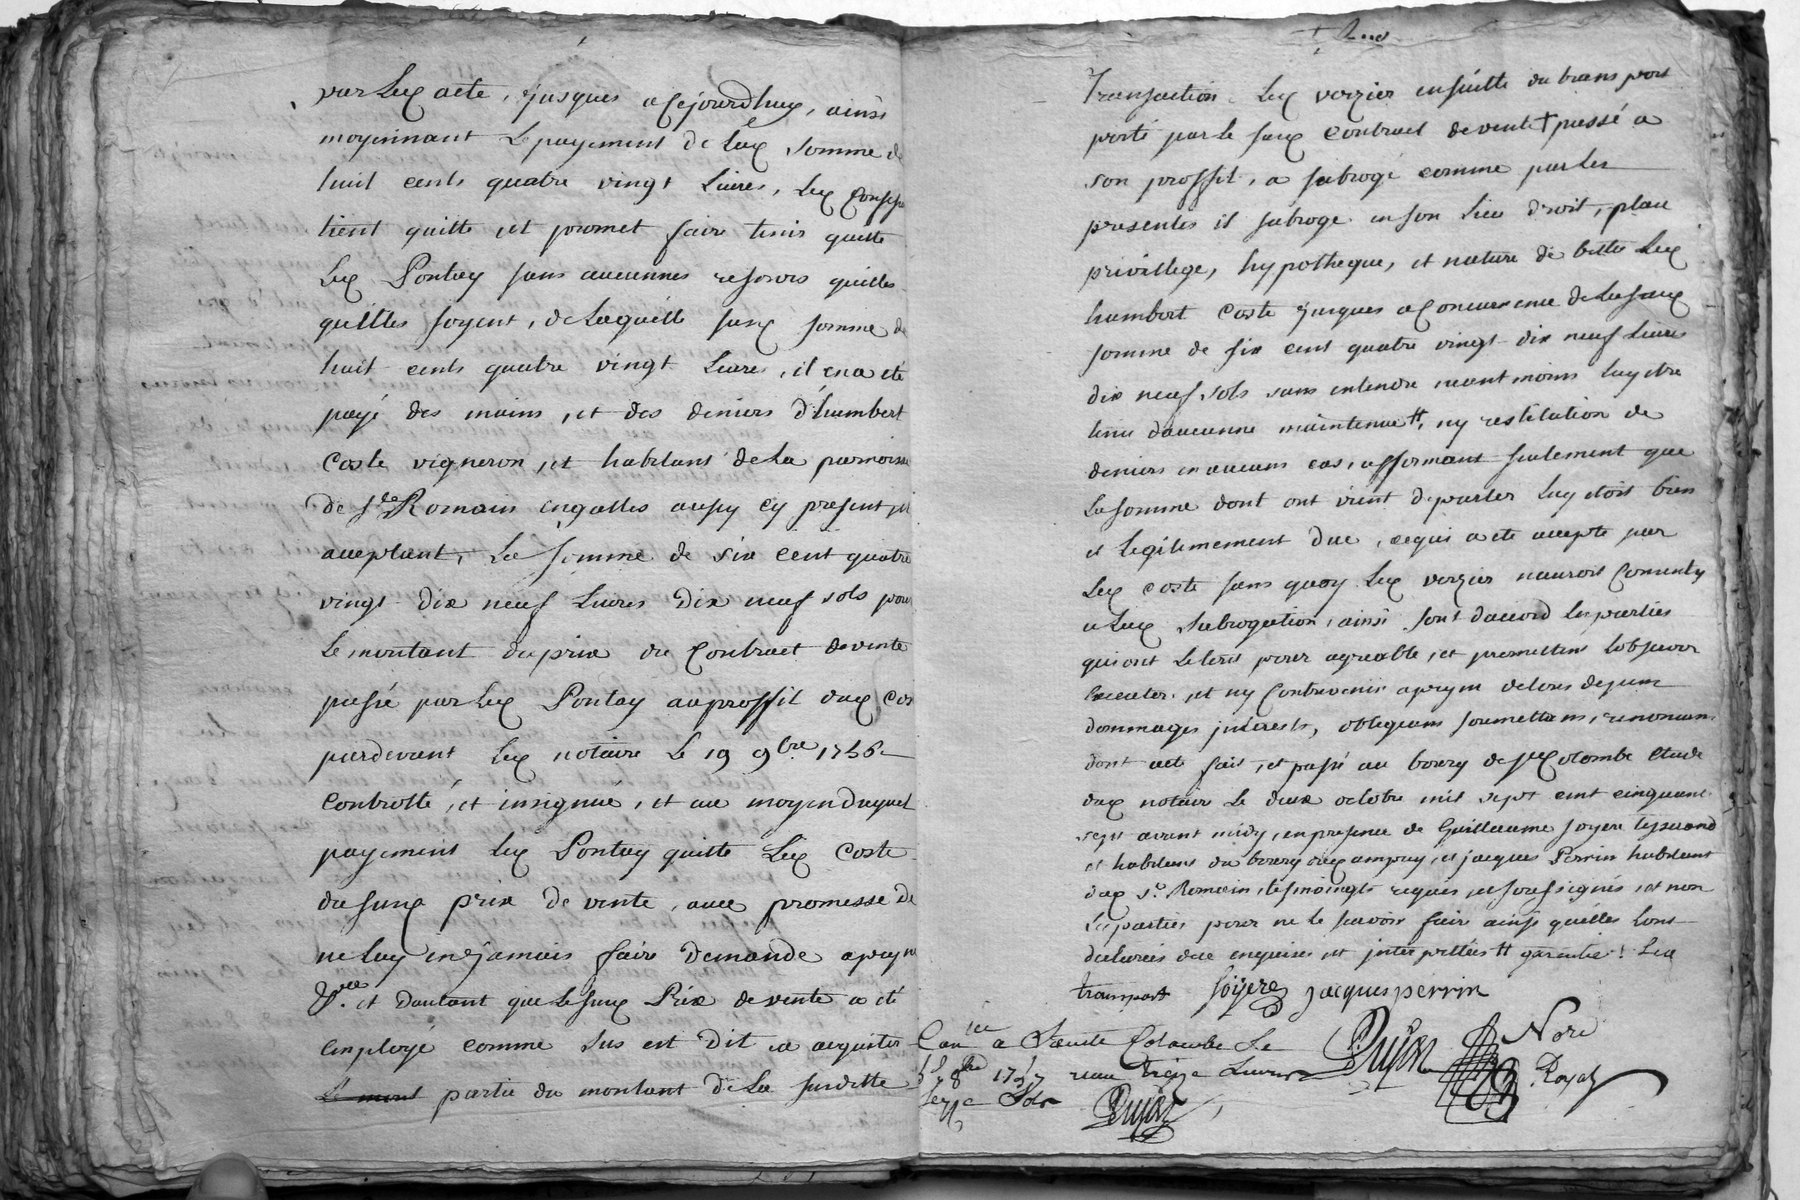 par led acte, jusques a cejourdhuy, ainsi
moyennant le payement de lad somme de
huit cents quatre vingt livres, led
tient quitte et promet faire tenir quitte
led Pontuy sans aucunnes reserves quelles
quelles soyent, de laquelle susd somme de
huit cents quatre vingt livres, il en a eté
payé des mains, et des deniers d'humbert
Coste vigneron, et habitant de la parroisse
de st Romain engalles aussy cy present, et
aceptant, la somme de six cent quatre
vingt dix neuf livres dix neuf sols pour
le montant du prix du Contract de vente
passé par led Pontuy au proffit dud Cos
pardevant led notaire le 19 9bre 1756
Controllé, et insignué, et au moyen duquel
payement led Pontuy quitte led Coste
du susd prix de vente, avec promesse de
ne luy en jamais faire demande a peyne
et dautant que le susd Prix de vente a eté
employé comme sus est dit a acquitter
partie du montant de la susditte
Transaction. Led verzier ensuitte du transport
porté par le susd Contract de vente + passé a
son proffit, a subrogé comme par les
presentes il subroge en son lieu droit, place
privillege, hypotheque, et nature de dette led
humbert Coste jusques a Concurrence de la susd
somme de six cent quatre vingt dix neuf livres
dix neuf sols sans entendre neantmoins luy etre
tenu daucunne maintenue #, ny restitution de
deniers en aucuns cas, affirmant seulement que
la somme dont ont vient de parler luy etoit bien
et legitimement due, ce qui a eté accepté par
led Coste sans quoy led verzier nauroit Consenty
a lad subrogation, ainsi sont daccord les parties
qui ont le tout pour agreable, et promettent lobserver
Executer, et ny Contrevenir a peyne de tous depens
dommages interests, obligeans soumettans, renonceans
dont acte fait, et passé au bourg de ste Colombe Etude
dud notaire le deux octobre mil sept cent cinquante
sept avant midy, en presence de Guillaume soyere
et habitant du bourg dud ampuy, et jacques Perrin habitant
dud st Romain, temoings requis et soussignés, et non
les parties pour ne le savoir faire ainsy quelles lont
declarées due enquises et interpellées # garentie + Led
transport Soyere jacques perrin
Con a Sainte Colombe le
8bre 1757 recu treize livres
Seize Sols
Dujat
Nore
Royal
Dujat